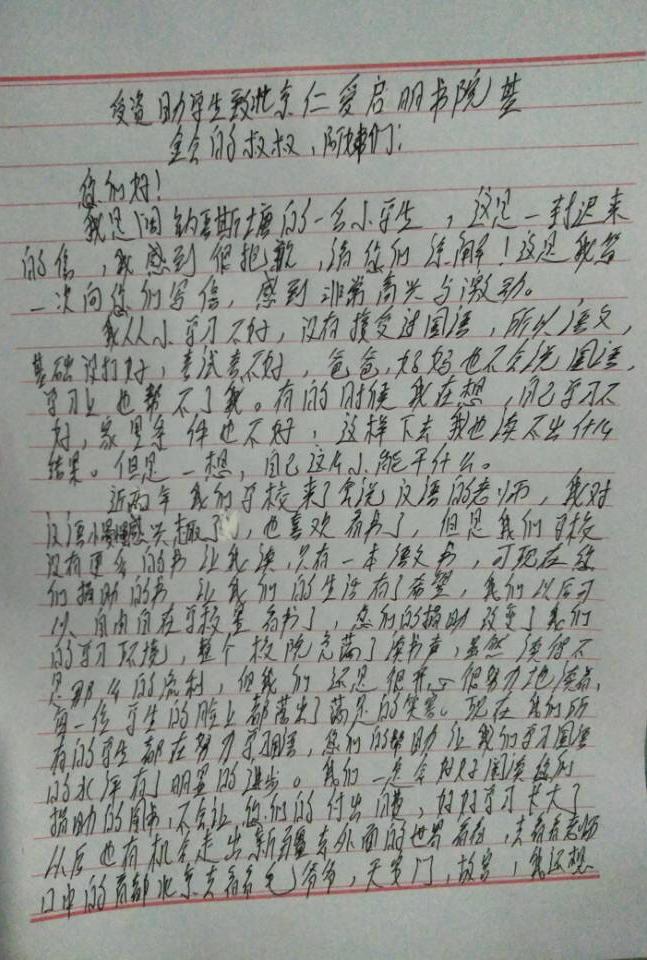 受资助学生致北京仁爱启明书院基
金会的叔叔,阿姨们:
您们好!
我是阔纳其斯塘的一名小学生,这是一封迟来
的信,我感到很抱歉,请您们谅解!这是我第
一次向您们写信,感到非常高兴与激动。
我从小学习不好,没有接受过国语,所以语文,
基础没打好,考试考不好,爸爸,妈妈也不会说国语,
学习上也帮不了我。有的时候我在想,自己学习不
好,家里条件也不好,这样下去我也读不出什么
结果。但是一想,自己这么小能干什么。
近两年我们学校来了会说汉语的老师,我对
汉语慢慢感兴趣了,也喜欢看书了,但是我们学校
没有更多的书让我读,只有一本语文书,可现在您
们捐助的书让我们的生活有了希望,我们以后可
以自由自在学校里看书了,您们的捐助改变了我们
的学习环境,整个校院充满了读书声,虽然读得不
是那么的流利,但我们还是很开心很努力地读着,
每一位学生的脸上都露出了满意的笑容。现在我们所
有的学生都在努力学习国语,您们的帮助让我们学习国语
的水平有了明显的进步。我们一定会好好阅读您们
捐助的图书,不会让您们的付出白费,好好学习长大了
从后也有机会走出新疆去外面的世界看看,去看看老师
口中的首都北京去看看毛爷爷,天安门,故宫,我还想